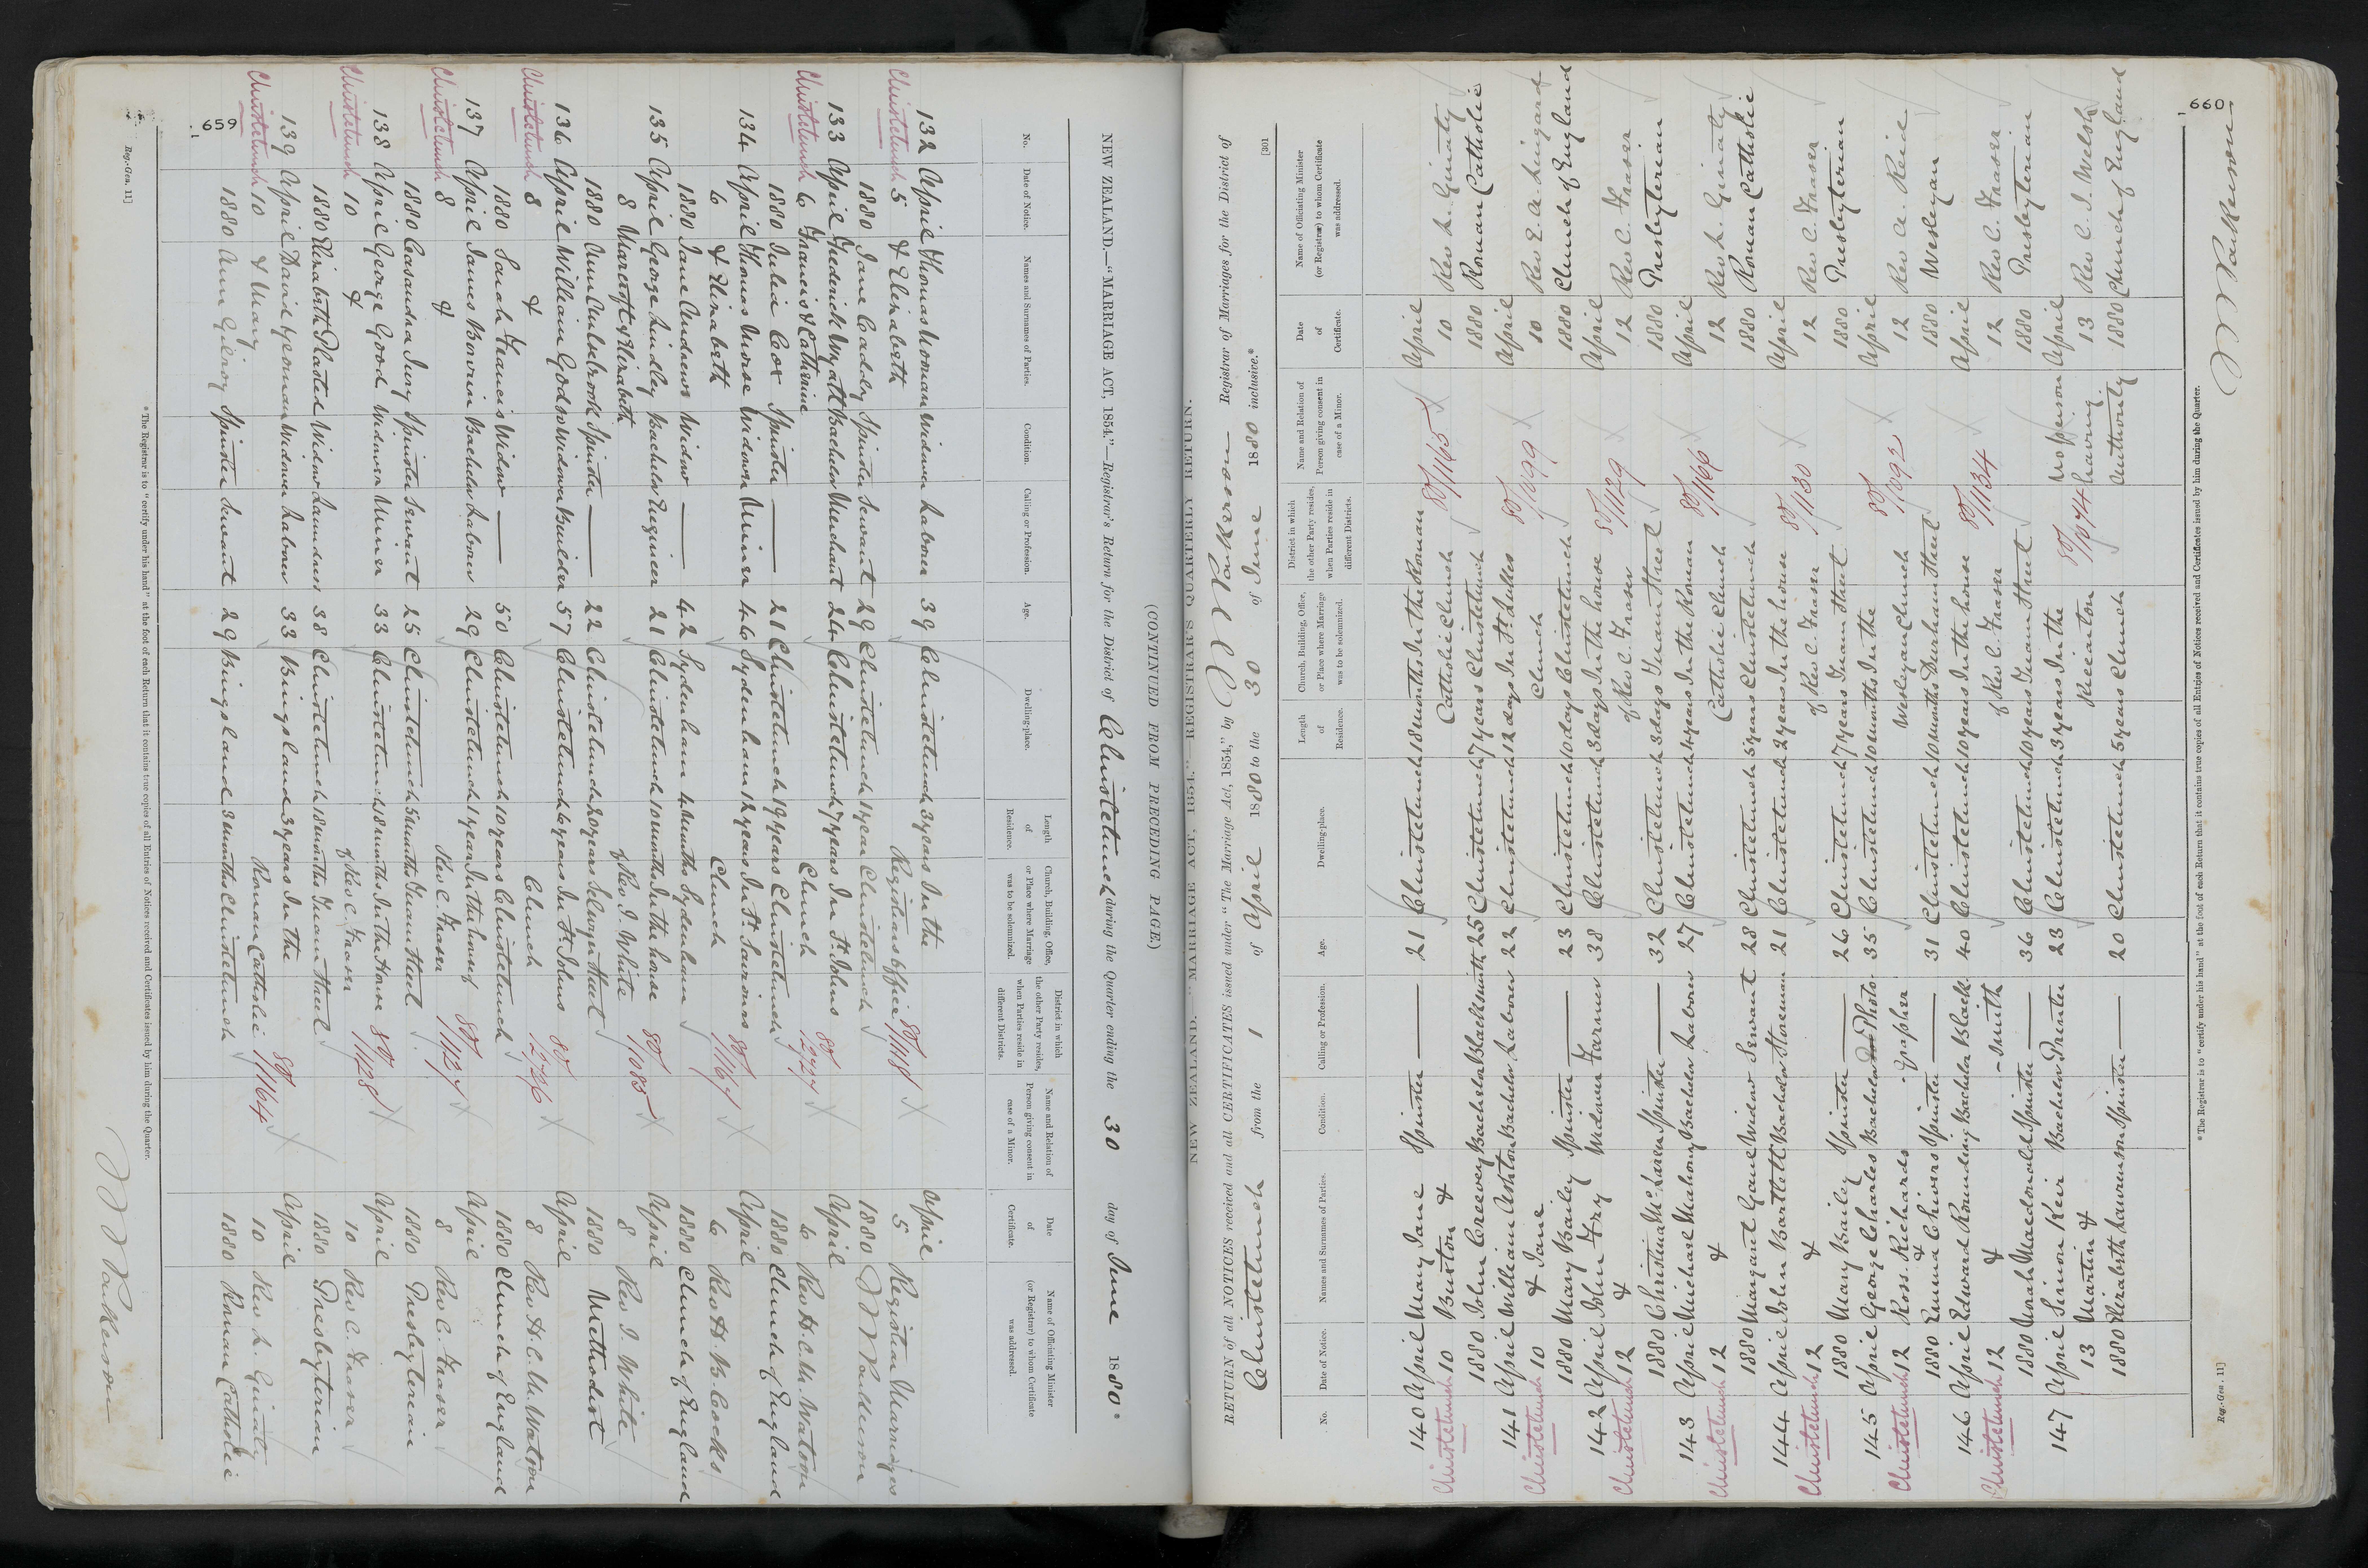 659
NEW ZEALAND.—"MARRIAGE ACT, 1854."—Registrar's Return for the District of Christchurch during the Quarter ending the 30 day of June 1880*
(CONTINUED FROM PRECEDING PAGE)
No. Date of Notice. Names and Surnames of Parties. Condition. Calling or Profession. Age. Dwelling-place. Length of Residence. Church, Building, Office, or Place where Marriage was to be solemnized. District in which the other Party resides, when Parties reside in different Districts. Name and Relation of Person giving consent in case of a Minor. Date of Certificate. Name of Officiating Minister (or Registrar) to whom Certificate was addressed.
132 April Thomas Widower Labourer 39 Christchurch 3 years In the April
Christchurch 5 & Elizabeth Registrars Office 80/1118 5 Registrar Marriages
1880 Jane Caddy Spinster Servant 29 Christchurch 1 year Christchurch 1880
133 April Frederick Wyatt Bachelor Merchant 24 Christchurch 7 years In St. Johns 80/2727 April
Christchurch 6 Francis & Catherine Church 6 Rev H. C. M. Watson
1880 Julia Cox Spinster — 21 Christchurch 19 years Christchurch 1880 Church of England
134 April Thomas Morse Widower Miner 46 Sydenham 12 years In St. Saviours 80/1167 April
6 & Elizabeth Church 6 Rev H. B. Cocks
1880 Jane Andrews Widow — 42 Sydenham 4 months Sydenham 1880 Church of England
135 April George Lindley Bachelor Engineer 21 Christchurch 10 months In the house 80/1085 April
8 Marcroft & Elizabeth of Rev. J. White 8 Rev J. White
1880 Ann Cullabrook Spinster — 22 Christchurch 20 years Selwyn Street 1880 Methodist
136 April William Godso Widower Builder 57 Christchurch 6 years In St Johns 80/2726 April
Christchurch 8 & Church 8 Rev H. C. M. Watson
1880 Sarah Francis Widow — 50 Christchurch 10 years Christchurch 1880 Church of England
137 April James Bowrin Bachelor Labourer 29 Christchurch 1 year In the house of 80/1127 April
Christchurch 8 & Rev C. Fraser 8 Rev C. Fraser
1880 Casandra Ivory Spinster Servant 25 Christchurch 5 months Tuam Street 1880 Presbyterian
138 April George Good Widower Miner 33 Christchurch 18 months In the House 80/1128 April
Christchurch 10 & of Rev C. Fraser 10 Rev C. Fraser
1880 Elizabeth Plasted Widow Laundress 38 Christchurch 18 months Tuam Street 1880 Presbyterian
139 April David Yeoman Widower Labourer 33 Bingsland 3 years In the 80/1164 April
Christchurch 10 & Mary Roman Catholic 10 Rev L. Ginaty
1880 Ann Gilroy Spinster Servant 29 Bingsland 3 months Christchurch 1880 Roman Catholic
* The Registrar is to "certify under his hand" at the foot of each Return that it contains true copies of all Entries of Notices received and Certificates issued by him during the Quarter.
Reg.-Gen. 11]
660
[301
NEW ZEALAND.—"MARRIAGE ACT, 1854."—REGISTRAR'S QUARTERLY RETURN.
RETURN of all NOTICES received and all CERTIFICATES issued under "The Marriage Act, 1854," by Parkerson Registrar of Marriages for the District of
Christchurch from the 1 of April 1880 to the 30 of June 1880 inclusive.*
No. Date of Notice. Names and Surnames of Parties. Condition. Calling or Profession. Age. Dwelling-place. Length of Residence. Church, Building, Office, or Place where Marriage was to be solemnized. District in which the other Party resides, when Parties reside in different Districts. Name and Relation of Person giving consent in case of a Minor. Date of Certificate. Name of Officiating Minister (or Registrar) to whom Certificate was addressed.
140 April Mary Jane Spinster — 21 Christchurch 18 months In the Roman 80/1165 April
Christchurch 10 Burton & Catholic Church 10 Rev L. Ginaty
1880 John Creevey Bachelor Blacksmith 25 Christchurch 7 years Christchurch 1880 Roman Catholic
141 April William Ashton Bachelor Labourer 22 Christchurch 12 days In St. Lukes 80/1099 April
Christchurch 10 & Jane Church 10 Rev E. A. Lingard
1880 Mary Bailey Spinster — 23 Christchurch 10 days Christchurch 1880 Church of England
142 April John Fry Widower Farmer 38 Christchurch 3 days In the house 80/1129 April
Christchurch 12 & of Rev C. Fraser 12 Rev C. Fraser
1880 Christina McLaren Spinster — 32 Christchurch 3 days Tuam Street 1880 Presbyterian
143 April Michael Mahony Bachelor Labourer 27 Christchurch 4 years In the Roman 80/1166 April
Christchurch 12 & Catholic Church 12 Rev L. Ginaty
1880 Margaret Gaul Widow Servant 28 Christchurch 5 years Christchurch 1880 Roman Catholic
144 April John Bartlett Bachelor Storeman 21 Christchurch 2 years In the house 80/1130 April
Christchurch 12 & of Rev C. Fraser 12 Rev C. Fraser
1880 Mary Bailey Spinster — 26 Christchurch 7 years Tuam Street 1880 Presbyterian
145 April George Charles Bachelor Photo- 35 Christchurch 10 months In the 80/1092 April
Christchurch 12 Ross Richards & -grapher Wesleyan Church 12 Rev A. Reid
1880 Emma Chivers Spinster — 31 Christchurch 10 months Durham Street 1880 Wesleyan
146 April Edward Rounding Bachelor Black 40 Christchurch 10 years In the house 80/1134 April
Christchurch 12 & -smith of Rev C. Fraser 12 Rev C. Fraser
1880 Norah Macdonald Spinster — 36 Christchurch 10 years Tuam Street 1880 Presbyterian
147 April Simon Keir Bachelor Printer 23 Christchurch 3 years In the 80/1074 No person April
13 Martin & Riccarton having 13 Rev C. J. Welsh
1880 Elizabeth Laurauson Spinster — 20 Christchurch 5 years Church Authority 1880 Church of England
* The Registrar is to "certify under his hand" at the foot of each Return that it contains true copies of all Entries of Notices received and Certificates issued by him during the Quarter.
Parkerson
Reg.-Gen. 11]